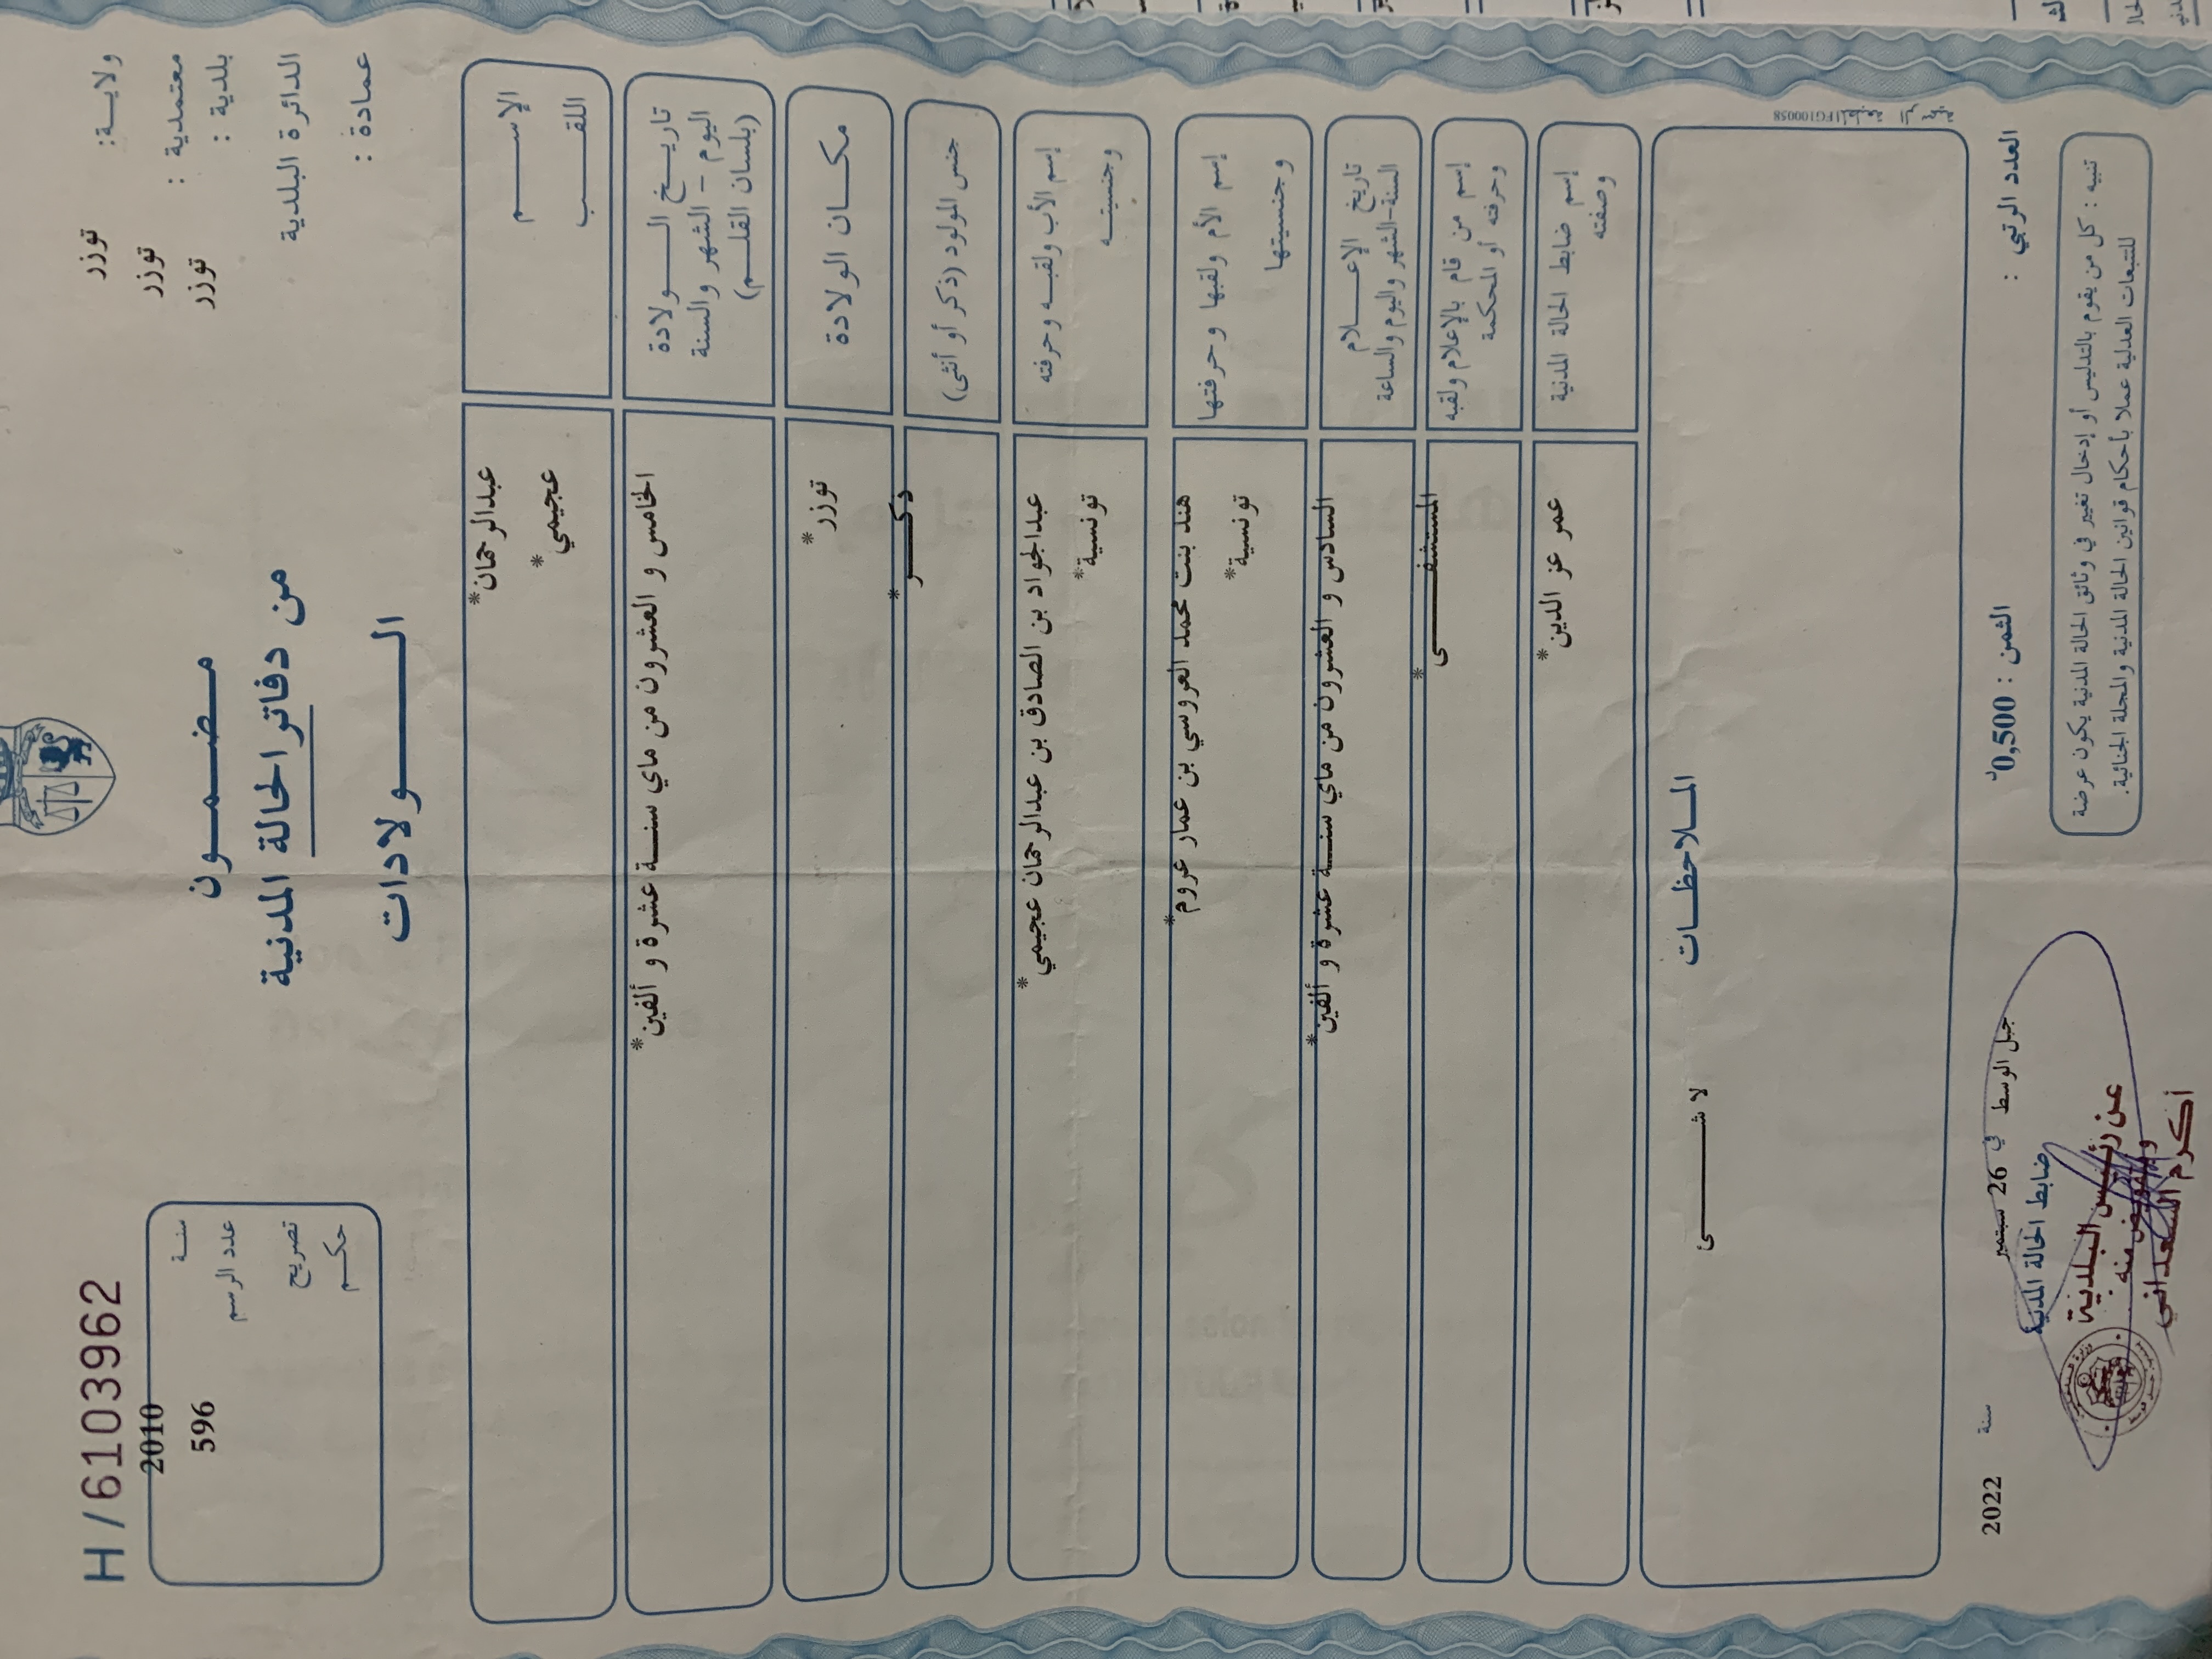 H / 6103962
ولايـــة: توزر
معتمدية : توزر
بلدية : توزر
الدائرة البلدية
عمادة :
مـضــمــون
من دفاتر الحالة المدنية
الــــــولادات
سنـة 2010
عدد الرسم 596
تصريح
حكـم
الإســـــم عبدالرحمان*
اللقـــــب عجيمي*
تاريـــخ الــــولادة
اليوم - الشهر والسنة
(بلسان القلـــم)
الخامس و العشرون من ماي سنـــة عشرة و ألفين*
مكـــان الولادة
توزر*
جنس المولود (ذكر أو أنثى)
ذكـــــر*
إسم الأب ولقبـه وحرفته
وجنسيتـــه
عبدالجواد بن الصادق بن عبدالرحمان عجيمي*
تونسية*
إسم الأم ولقبها وحرفتها
وجنسيتها
هند بنت محمد العروسي بن عمار عروم*
تونسية*
تاريخ الإعــــلام
السنة-الشهر واليوم والساعة
السادس و العشرون من ماي سنـــة عشرة و ألفين*
إسم من قام بالإعلام ولقبه
وحرفته أو المحكمة
المستشفـــــــى*
إسم ضابط الحالة المدنية
وصفته
عمر عز الدين*
المـلاحظـــات
لا شـــــــــئ
المطبعة الرسمية FG100058
العدد الرتبي :
الثمن : 0,500د
جبل الوسط في 26 سبتمبر سنة 2022
ضابط الحالة المدنية
عن رئيس البلدية
وبتفويض منه
أكرم السعداني
تنبيه : كل من يقوم بالتدليس أو إدخال تغيير في وثائق الحالة المدنية يكون عرضة
للتتبعات العدلية عملا بأحكام قوانين الحالة المدنية والمجلة الجنائية.